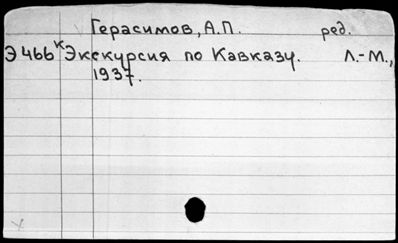 Герасимов, А.П. ред.
Э466к Экскурсия по Кавказу. Л.-М.,
1937.